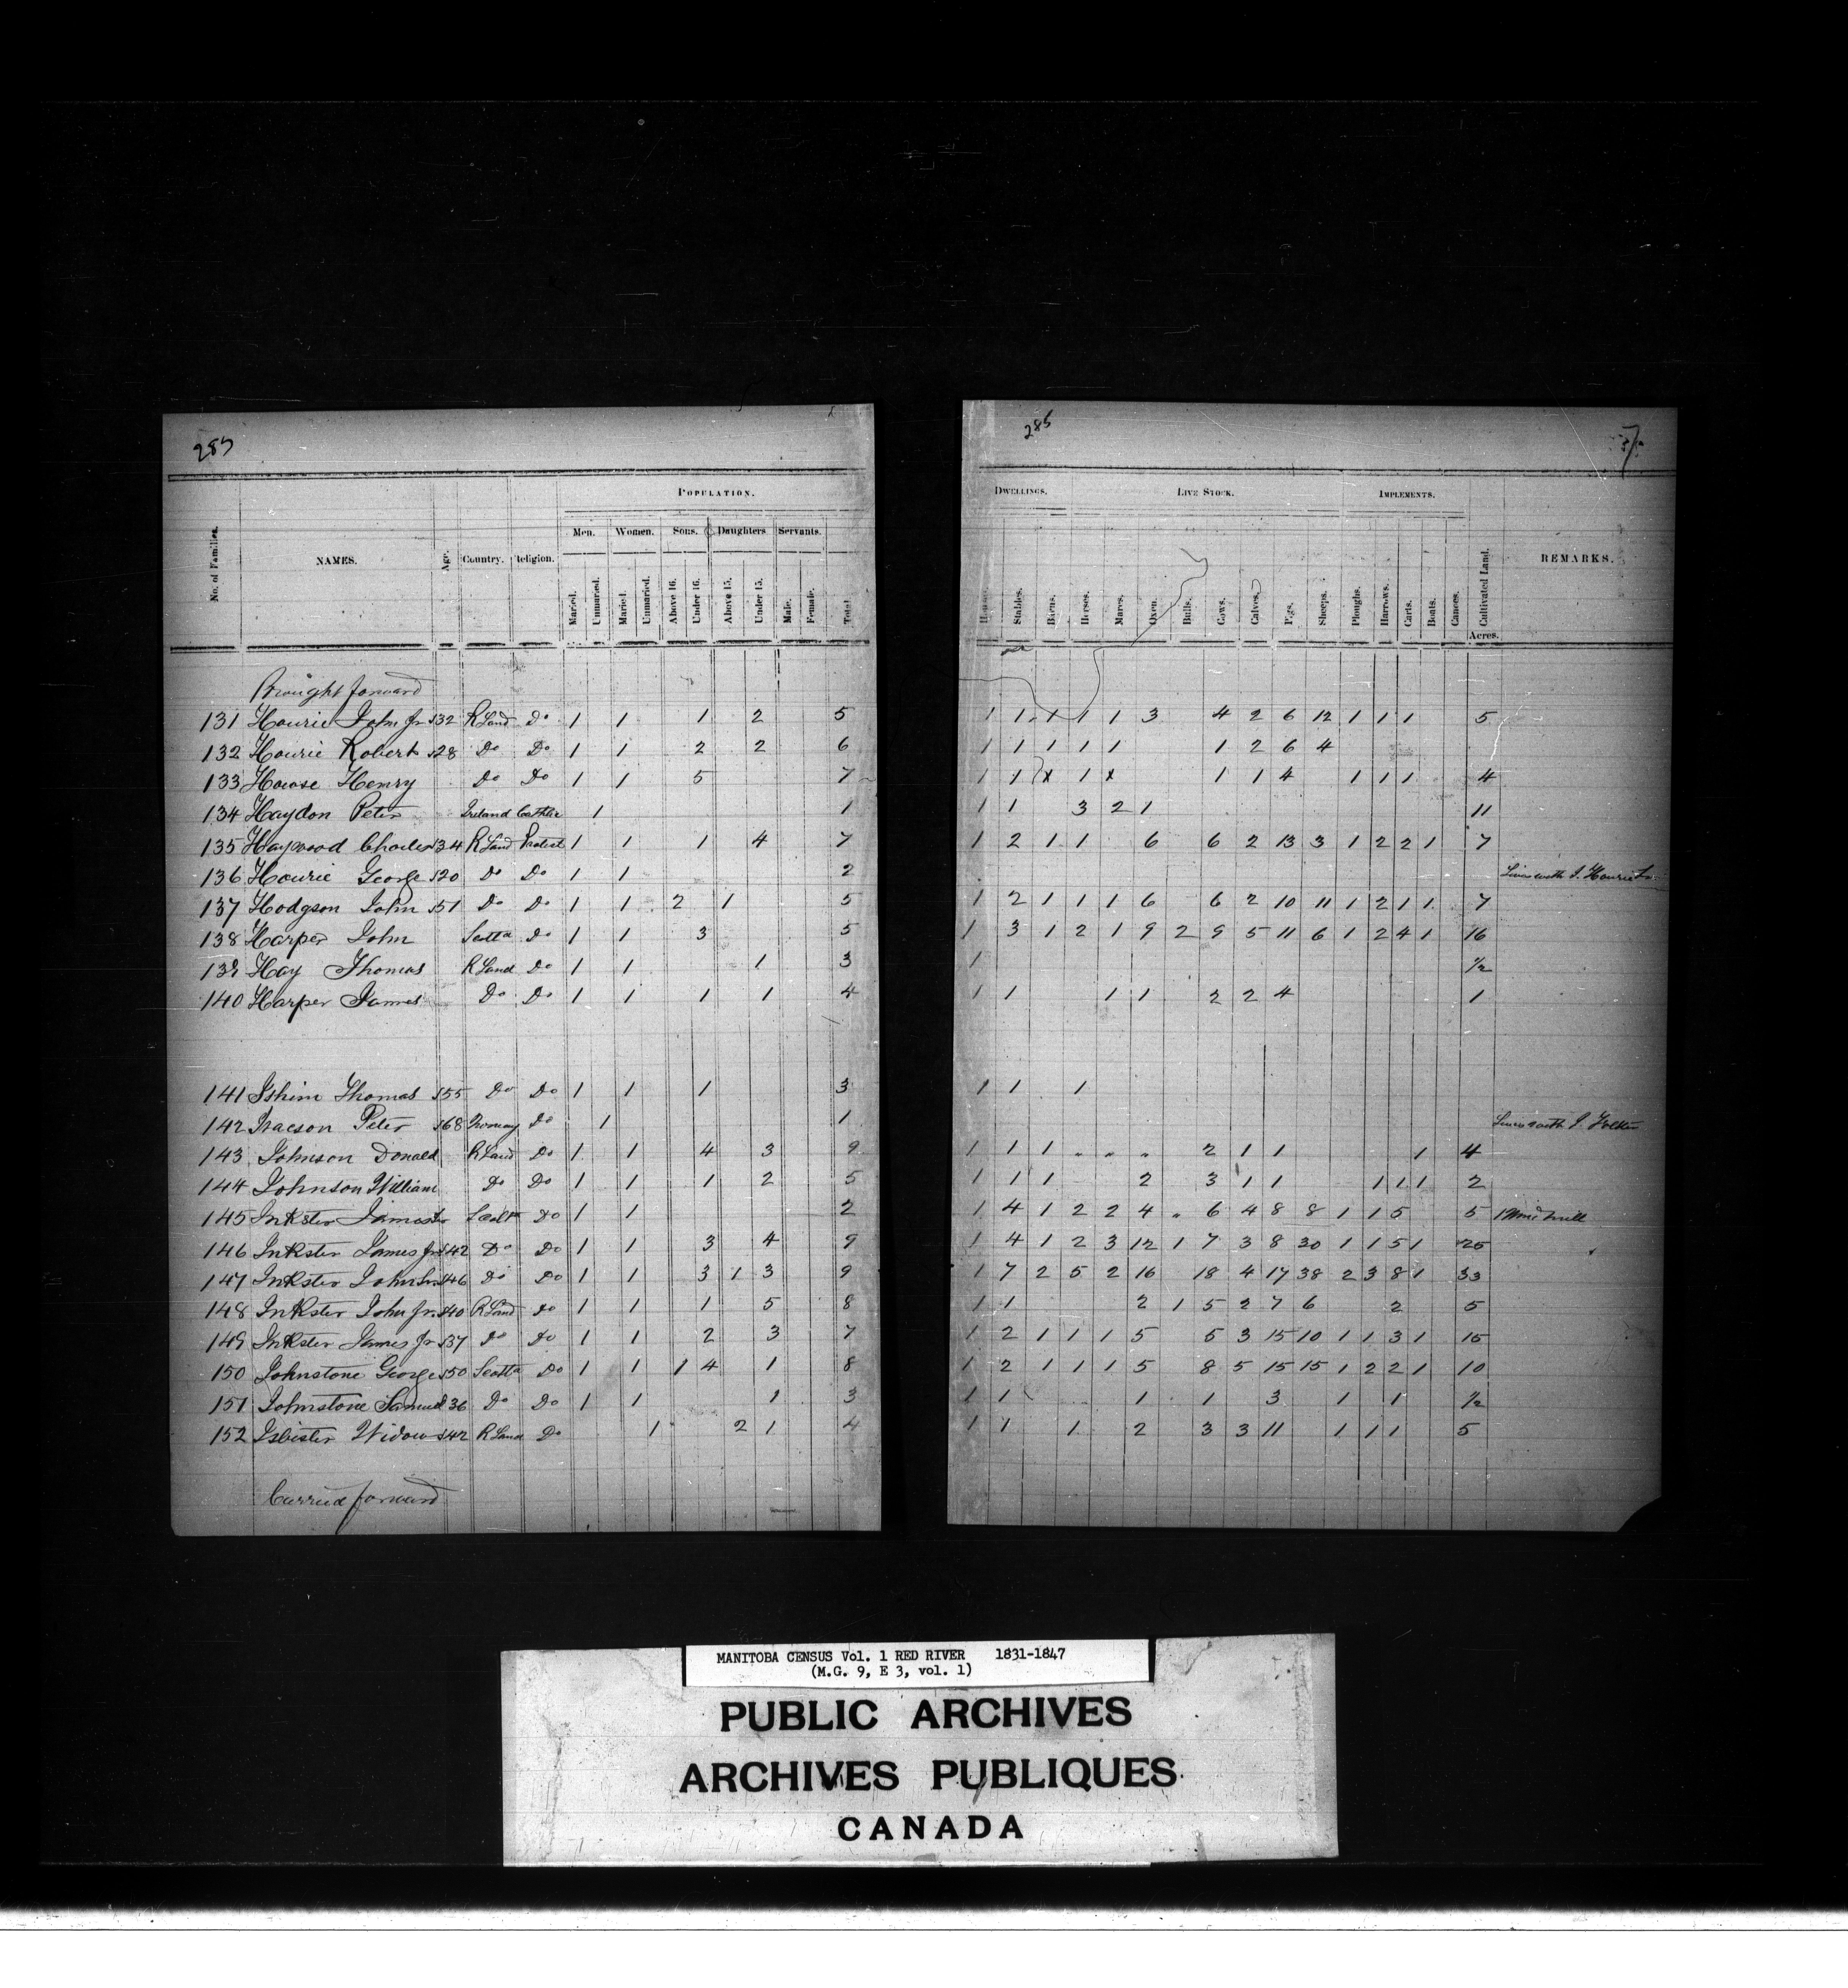 285
POPULATION.
Men. Women. Sons. Daughters Servants.
No. of Families. NAMES. Age. Country. Religion. Maried. Unmaried. Maried. Unmaried. Above 16. Under 16. Above 15. Under 15. Male. Female. Total
Brought forward
131 Hourie John Jr 32 R Land Do 1 1 1 2 5
132 Hourie Robert 28 Do Do 1 1 2 2 6
133 Howse Henry Do Do 1 1 5 7
134 Haydon Peter Ireland Cathlic 1 1
135 Haywood Charles 34 R Land Protest 1 1 1 4 7
136 Hourie George 20 Do Do 1 1 2
137 Hodgson John 51 Do Do 1 1 2 1 5
138 Harper John Scotld Do 1 1 3 5
139 Hay Thomas R Land Do 1 1 1 3
140 Harper James Do Do 1 1 1 1 4
141 Ishim Thomas 55 Do Do 1 1 1 3
142 Isacson Peter 68 Norway Do 1 1
143 Johnson Donald R Land Do 1 1 4 3 9
144 Johnson William Do Do 1 1 1 2 5
145 Inkster James Sr Scotld Do 1 1 2
146 Inkster James Jr 42 Do Do 1 1 3 4 9
147 Inkster John Sr 46 Do Do 1 1 3 1 3 9
148 Inkster John Jr 40 R Land Do 1 1 1 5 8
149 Inkster James Jr 37 Do Do 1 1 2 3 7
150 Johnstone George 50 Scotld Do 1 1 1 4 1 8
151 Johnstone Samuel 36 Do Do 1 1 1 3
152 Isbister Widow 42 R Land Do 1 2 1 4
Carried forward
285
DWELLINGS. LIVE STOCK. IMPLEMENTS.
Stables. Barns. Horses. Mares. Oxen. Bulls. Cows. Calves. Pigs. Sheeps. Ploughs. Harrows. Carts. Boats. Canoes. Cultivated Land. REMARKS.
Acres.
1 1 1 1 1 3 4 2 6 12 1 1 1 5
1 1 1 1 1 1 2 6 4
1 1 x 1 x 1 1 4 1 1 1 4
1 1 3 2 1 11
1 2 1 1 6 6 2 13 3 1 2 2 1 7
Lives with J. Hourie Sr
1 2 1 1 1 6 6 2 10 11 1 2 1 1 7
1 3 1 2 1 9 2 9 5 11 6 1 2 4 1 16
1 1/2
1 1 1 1 2 2 4 1
1 1 1
Lives with J.
1 1 1 " " " 2 1 1 1 4
1 1 1 2 3 1 1 1 1 1 2
1 4 1 2 2 4 " 6 4 8 8 1 1 5 5 1 Wind mill
1 4 1 2 3 12 1 7 3 8 30 1 1 5 1 25
1 7 2 5 2 16 18 4 17 38 2 3 8 1 33
1 1 2 1 5 2 7 6 2 5
1 2 1 1 1 5 5 3 15 10 1 1 3 1 15
1 2 1 1 1 5 8 5 15 15 1 2 2 1 10
1 1 1 1 3 1 1 1/2
1 1 1 2 3 3 11 1 1 1 5
MANITOBA CENSUS Vol. 1 RED RIVER 1831-1847
(M.G. 9, E 3, vol. 1)
PUBLIC ARCHIVES
ARCHIVES PUBLIQUES
CANADA